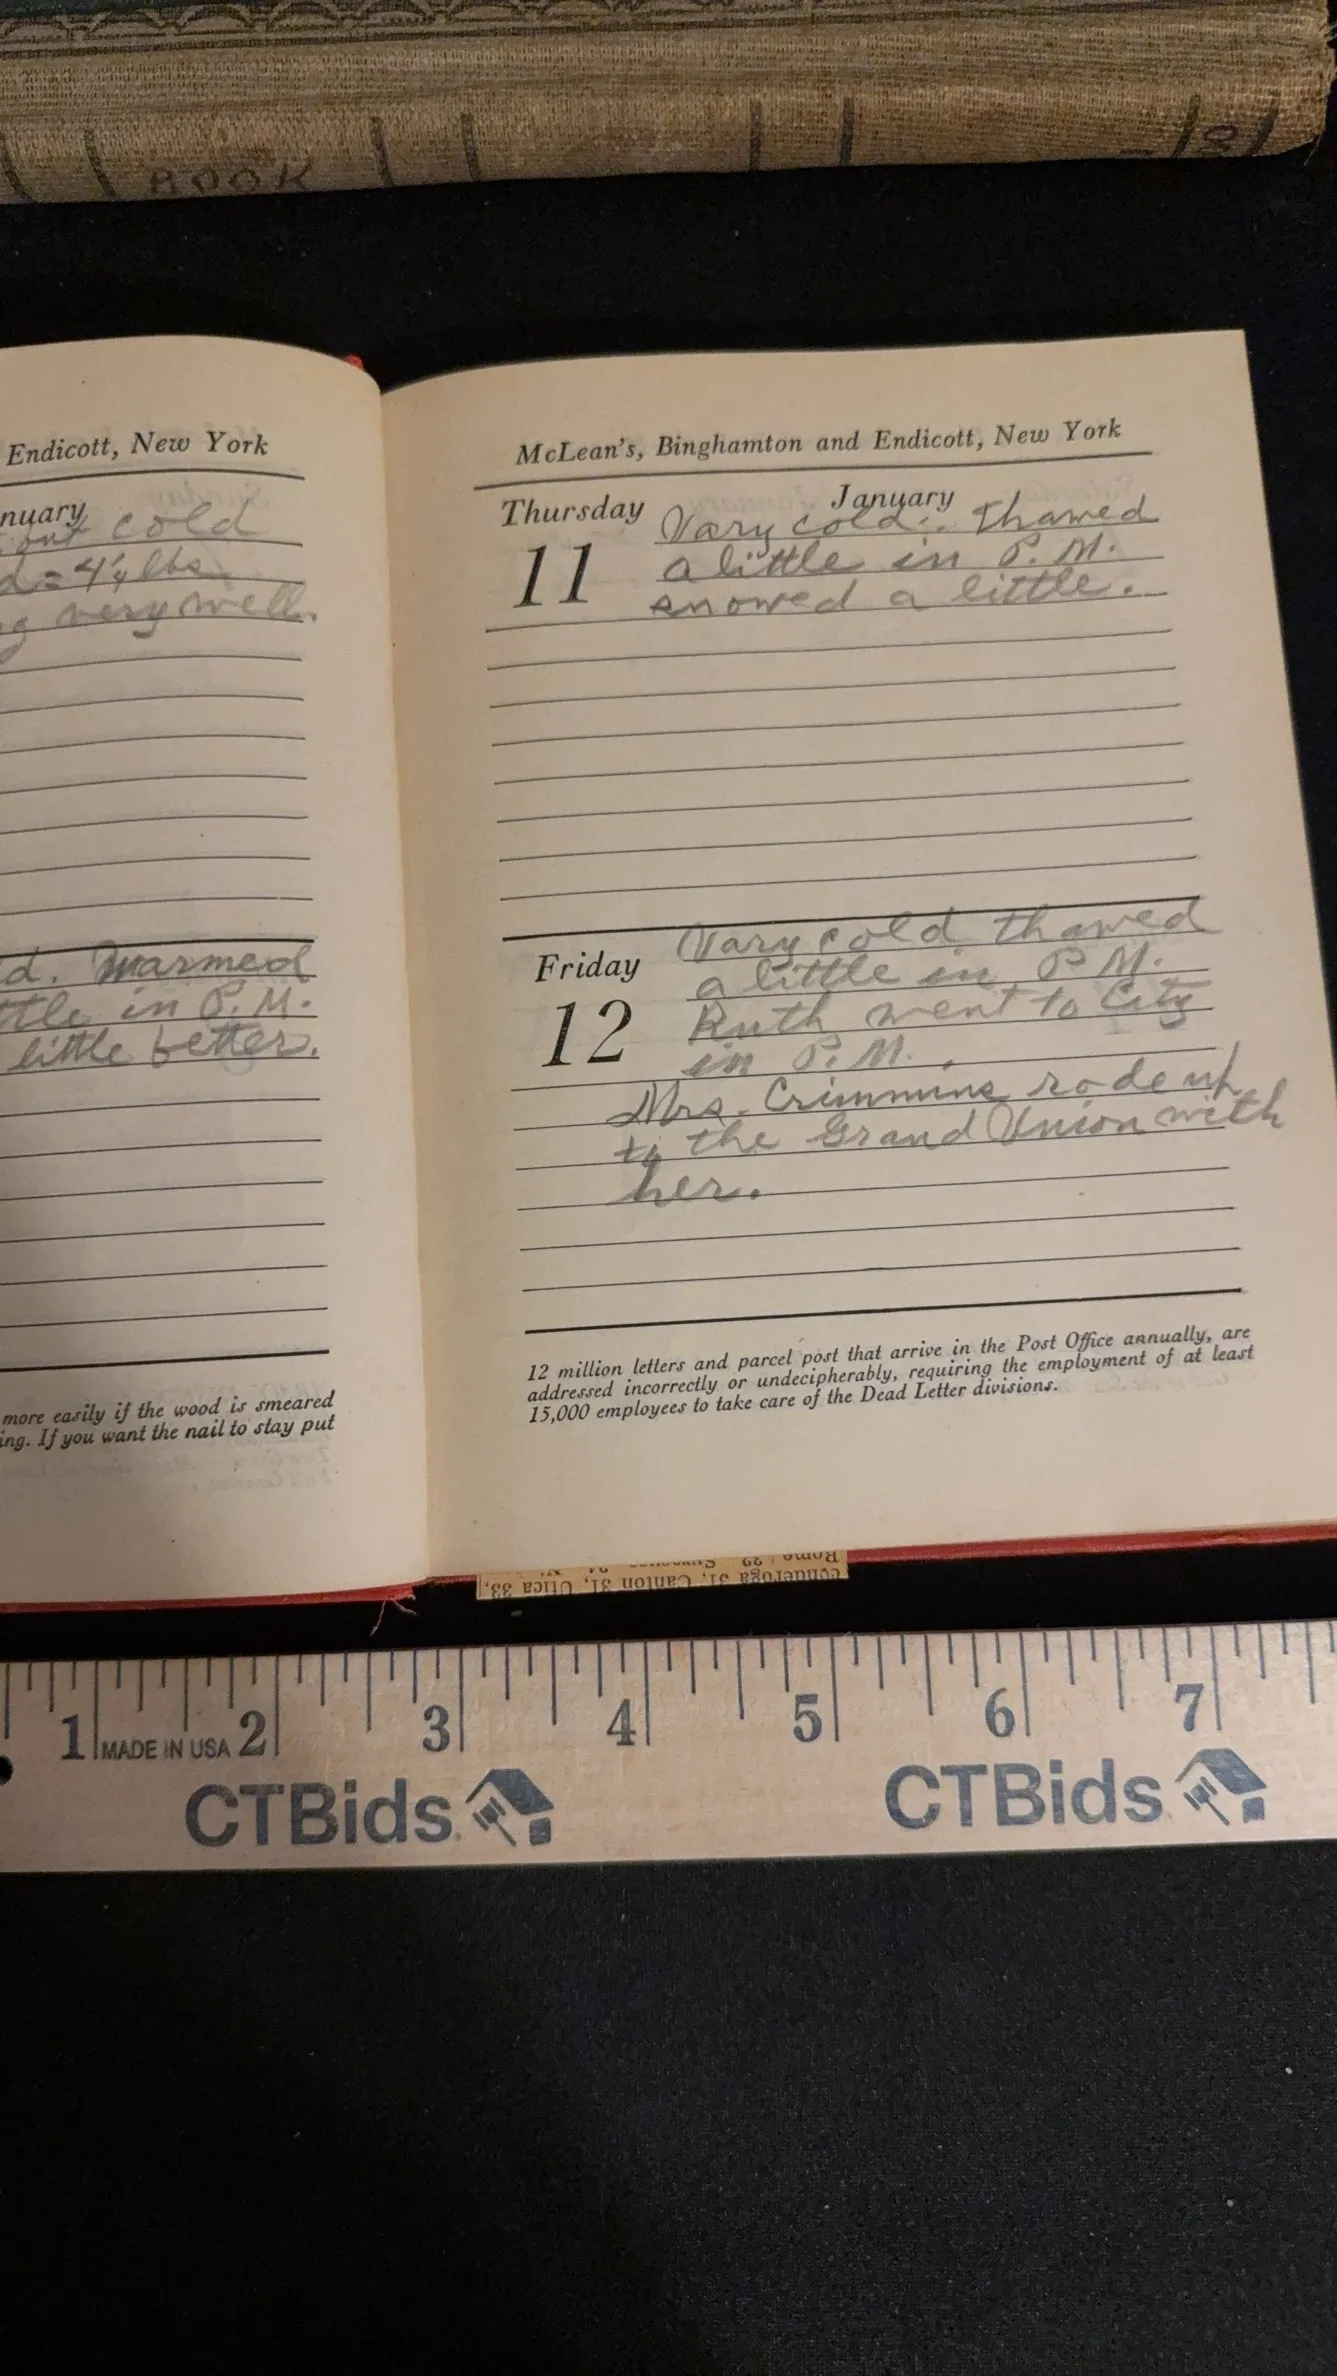 BOOK
Endicott, New York
nuary
out cold
d = 4¼ lbs.
g very well.
d. Warmed
ttle in P.M.
little better.
more easily if the wood is smeared
ing. If you want the nail to stay put
McLean's, Binghamton and Endicott, New York
Thursday January
11
Vary cold. Thawed
a little in P. M.
snowed a little.
Friday
12
Vary cold thawed
a little in P M.
Ruth went to City
in P. M.
Mrs. Crimmins rode up
to the Grand Union with
her.
12 million letters and parcel post that arrive in the Post Office annually, are
addressed incorrectly or undecipherably, requiring the employment of at least
15,000 employees to take care of the Dead Letter divisions.
Rome 29
onderoga 31, Canton 31, Utica 33,
1 MADE IN USA 2 3 4 5 6 7
CTBids. CTBids.